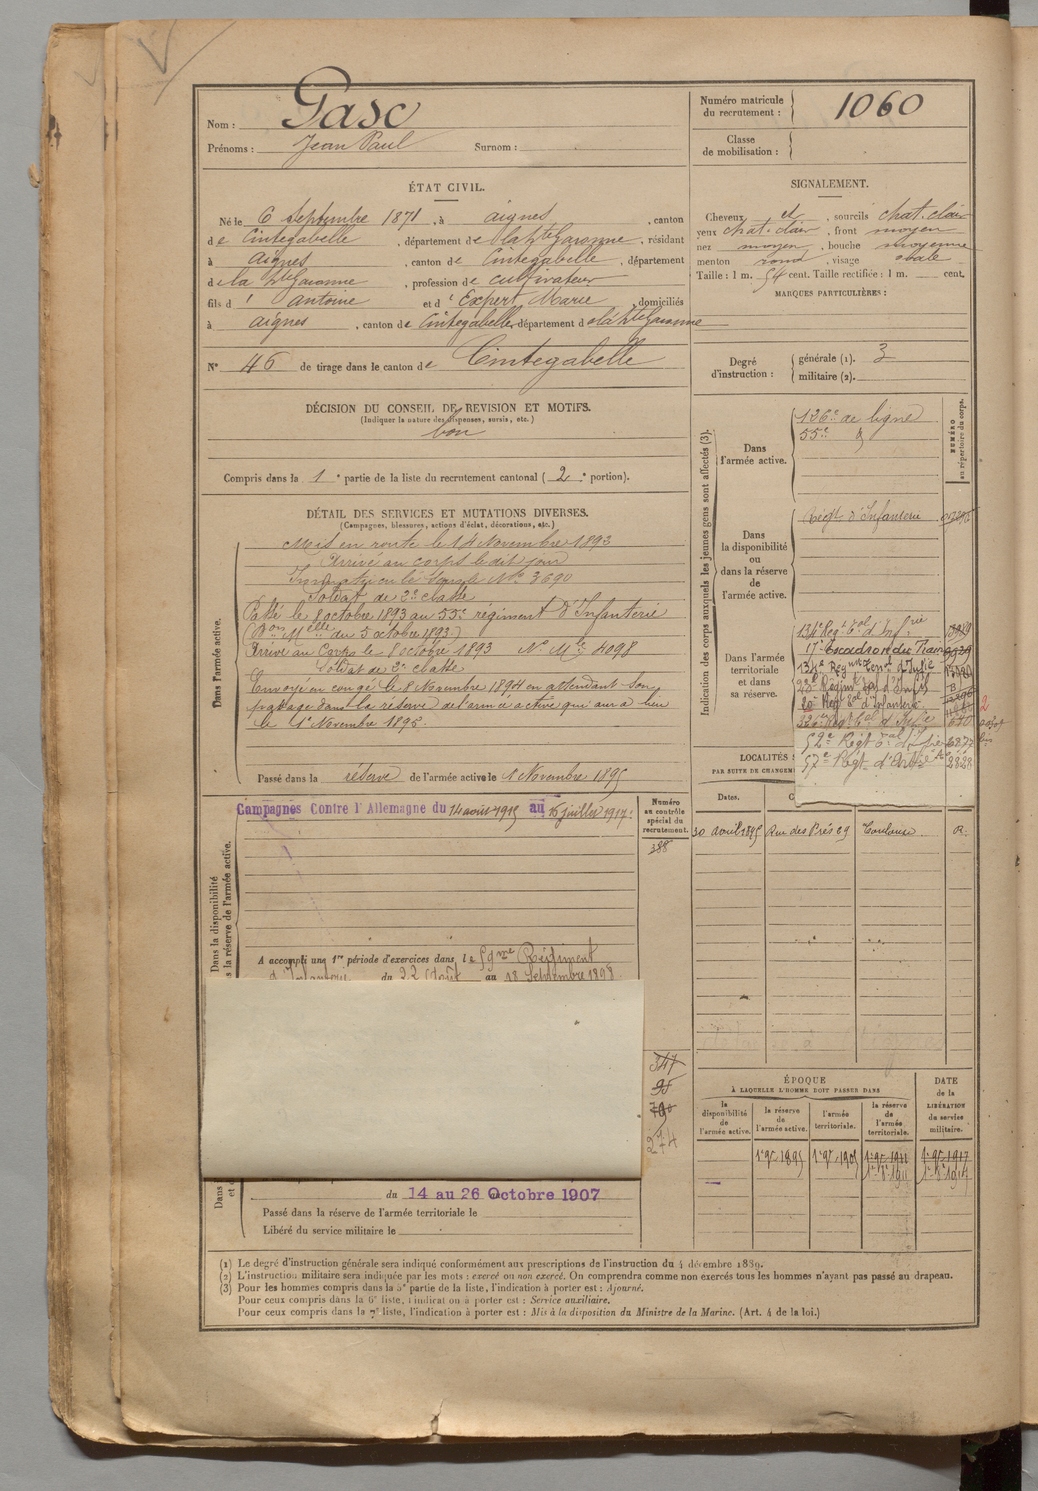 Nom : Gasc
Prénoms : Jean Paul Surnom :
Numéro matricule
du recrutement : 1060
Classe
de mobilisation :
ÉTAT CIVIL.
Né le 6 Septembre 1871, à aignes, canton
de Cintegabelle, département de la hte Garonne, résidant
à aignes, canton de Cintegabelle, département
de la hte Garonne, profession de cultivateur
fils d' Antoine et d' Expert Marie, domiciliés
à aignes, canton de Cintegabelle, département de la hte Garonne
N° 46 de tirage dans le canton de Cintegabelle
SIGNALEMENT.
Cheveux et, sourcils chat. clair
yeux chat. clair, front moyen
nez moyen, bouche moyenne
menton rond, visage ovale
Taille : 1 m. 54 cent. Taille rectifiée : 1 m. cent.
MARQUES PARTICULIÈRES :
Degré
d'instruction :
générale (1). 3
militaire (2).
DÉCISION DU CONSEIL DE REVISION ET MOTIFS.
(Indiquer la nature des dispenses, sursis, etc.)
bon
Compris dans la 1e partie de la liste du recrutement cantonal (2e portion).
DÉTAIL DES SERVICES ET MUTATIONS DIVERSES.
(Campagnes, blessures, actions d'éclat, décorations, etc.)
Dans l'armée active.
Mis en route le 14 Novembre 1893
Arrivé au corps le dit jour
Immatriculé sous le N° 3690
Soldat de 2e classe
Passé le 8 octobre 1893 au 55e régiment d'Infanterie
(Don Mlle du 5 octobre 1893)
Arrivé au Corps le 8 octobre 1893 N° Mle 4098
Soldat de 2e classe
Envoyé en congé le 8 Novembre 1894 en attendant son
passage dans la réserve de l'armée active qui aura lieu
le 1er Novembre 1895
Passé dans la réserve de l'armée active le 1 Novembre 1895
Indication des corps auxquels les jeunes gens sont affectés (3).
NUMÉRO
au répertoire du corps.
Dans
l'armée active.
126e de ligne
55e
Dans
la disponibilité
ou
dans la réserve
de
l'armée active.
Régt d'Infanterie
Dans l'armée
territoriale
et dans
sa réserve.
134e Régt tal d'Infrie
17e Escadron du Train
134e Régiment
52e Régt
57e Régt d'Artie 2828
LOCALITÉS
PAR SUITE DE CHANGEM
Dates.
30 avril 1895 Rue des Prés 29 Toulouse R.
Dans la disponibilité
la réserve de l'armée active.
Campagnes Contre l'Allemagne du 14 août 1915 au 15 juillet 1917.
Numéro
au contrôle
spécial du
recrutement.
388
A accompli une 1re période d'exercices dans le 59me Régiment
d'Infanterie du 22 Août au 18 Septembre 1898
347
95
du 14 au 26 Octobre 1907
Passé dans la réserve de l'armée territoriale le
Libéré du service militaire le
ÉPOQUE
A LAQUELLE L'HOMME DOIT PASSER DANS
la
disponibilité
de
l'armée active.
la réserve
de
l'armée active.
l'armée
territoriale.
la réserve
de
l'armée
territoriale.
DATE
de la
LIBÉRATION
du service
militaire.
1er 9bre 1895 1er 9bre 1905 1er 9bre 1911 1er 9bre 1917
(1) Le degré d'instruction générale sera indiqué conformément aux prescriptions de l'instruction du 4 décembre 1889.
(2) L'instruction militaire sera indiquée par les mots : exercé ou non exercé. On comprendra comme non exercés tous les hommes n'ayant pas passé au drapeau.
(3) Pour les hommes compris dans la 5e partie de la liste, l'indication à porter est : Ajourné.
Pour ceux compris dans la 6e liste, l'indication à porter est : Service auxiliaire.
Pour ceux compris dans la 7e liste, l'indication à porter est : Mis à la disposition du Ministre de la Marine. (Art. 4 de la loi.)